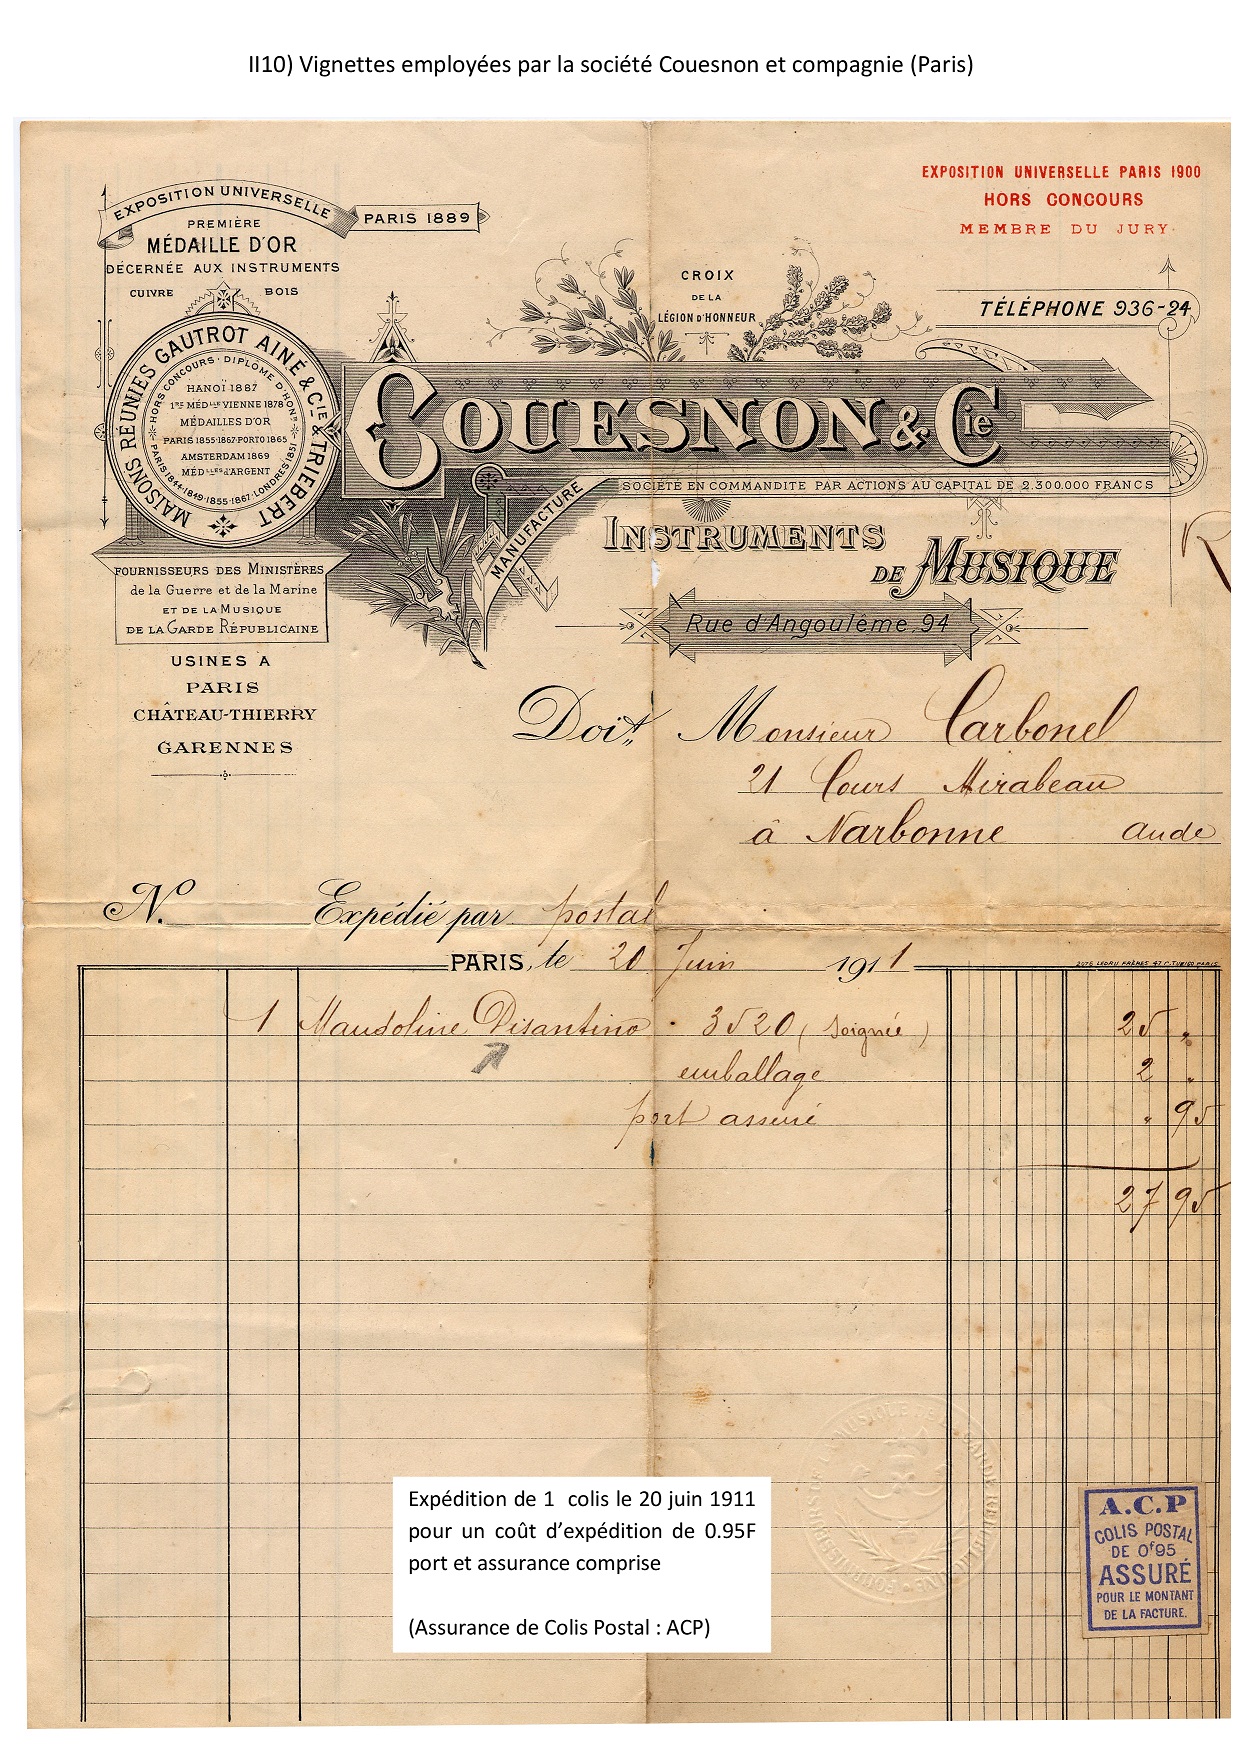 II10) Vignettes employées par la société Couesnon et compagnie (Paris)
EXPOSITION UNIVERSELLE PARIS 1900
HORS CONCOURS
MEMBRE DU JURY
EXPOSITION UNIVERSELLE PARIS 1889
PREMIÈRE
MÉDAILLE D'OR
DÉCERNÉE AUX INSTRUMENTS
CUIVRE BOIS
CROIX
DE LA
LÉGION D'HONNEUR
TÉLÉPHONE 936-24
MAISONS RÉUNIES GAUTROT AINÉ & Cie & TRIEBERT
HORS CONCOURS · DIPLOME D'HONr
HANOÏ 1887
1re MÉDlle VIENNE 1878
MÉDAILLES D'OR
PARIS 1855·1867·PORTO 1865
AMSTERDAM 1869
MÉDlles d'ARGENT
PARIS 1844·1849·1855·1867·LONDRES 1851
COUESNON & Cie
SOCIÉTÉ EN COMMANDITE PAR ACTIONS AU CAPITAL DE 2.300.000 FRANCS
MANUFACTURE
INSTRUMENTS
DE MUSIQUE
Rue d'Angoulême, 94
FOURNISSEURS DES MINISTÈRES
de la Guerre et de la Marine
ET DE LA MUSIQUE
DE LA GARDE RÉPUBLICAINE
USINES A
PARIS
CHÂTEAU-THIERRY
GARENNES
R
Doit Monsieur Carbonel
21 Cours Mirabeau
à Narbonne Aude
No. Expédié par postal
PARIS, le 20 Juin 1911
2076 LEDRU FRÈRES 47.r. TURBIGO PARIS
1 Mandoline Disantino · 3520 (soignée) 25 "
emballage 2 "
port assuré " 95
27 95
FOURNISSEURS DE LA MUSIQUE DE LA GARDE RÉPUBLICAINE
Expédition de 1 colis le 20 juin 1911
pour un coût d'expédition de 0.95F
port et assurance comprise
(Assurance de Colis Postal : ACP)
A.C.P
COLIS POSTAL
DE 0f95
ASSURÉ
POUR LE MONTANT
DE LA FACTURE.